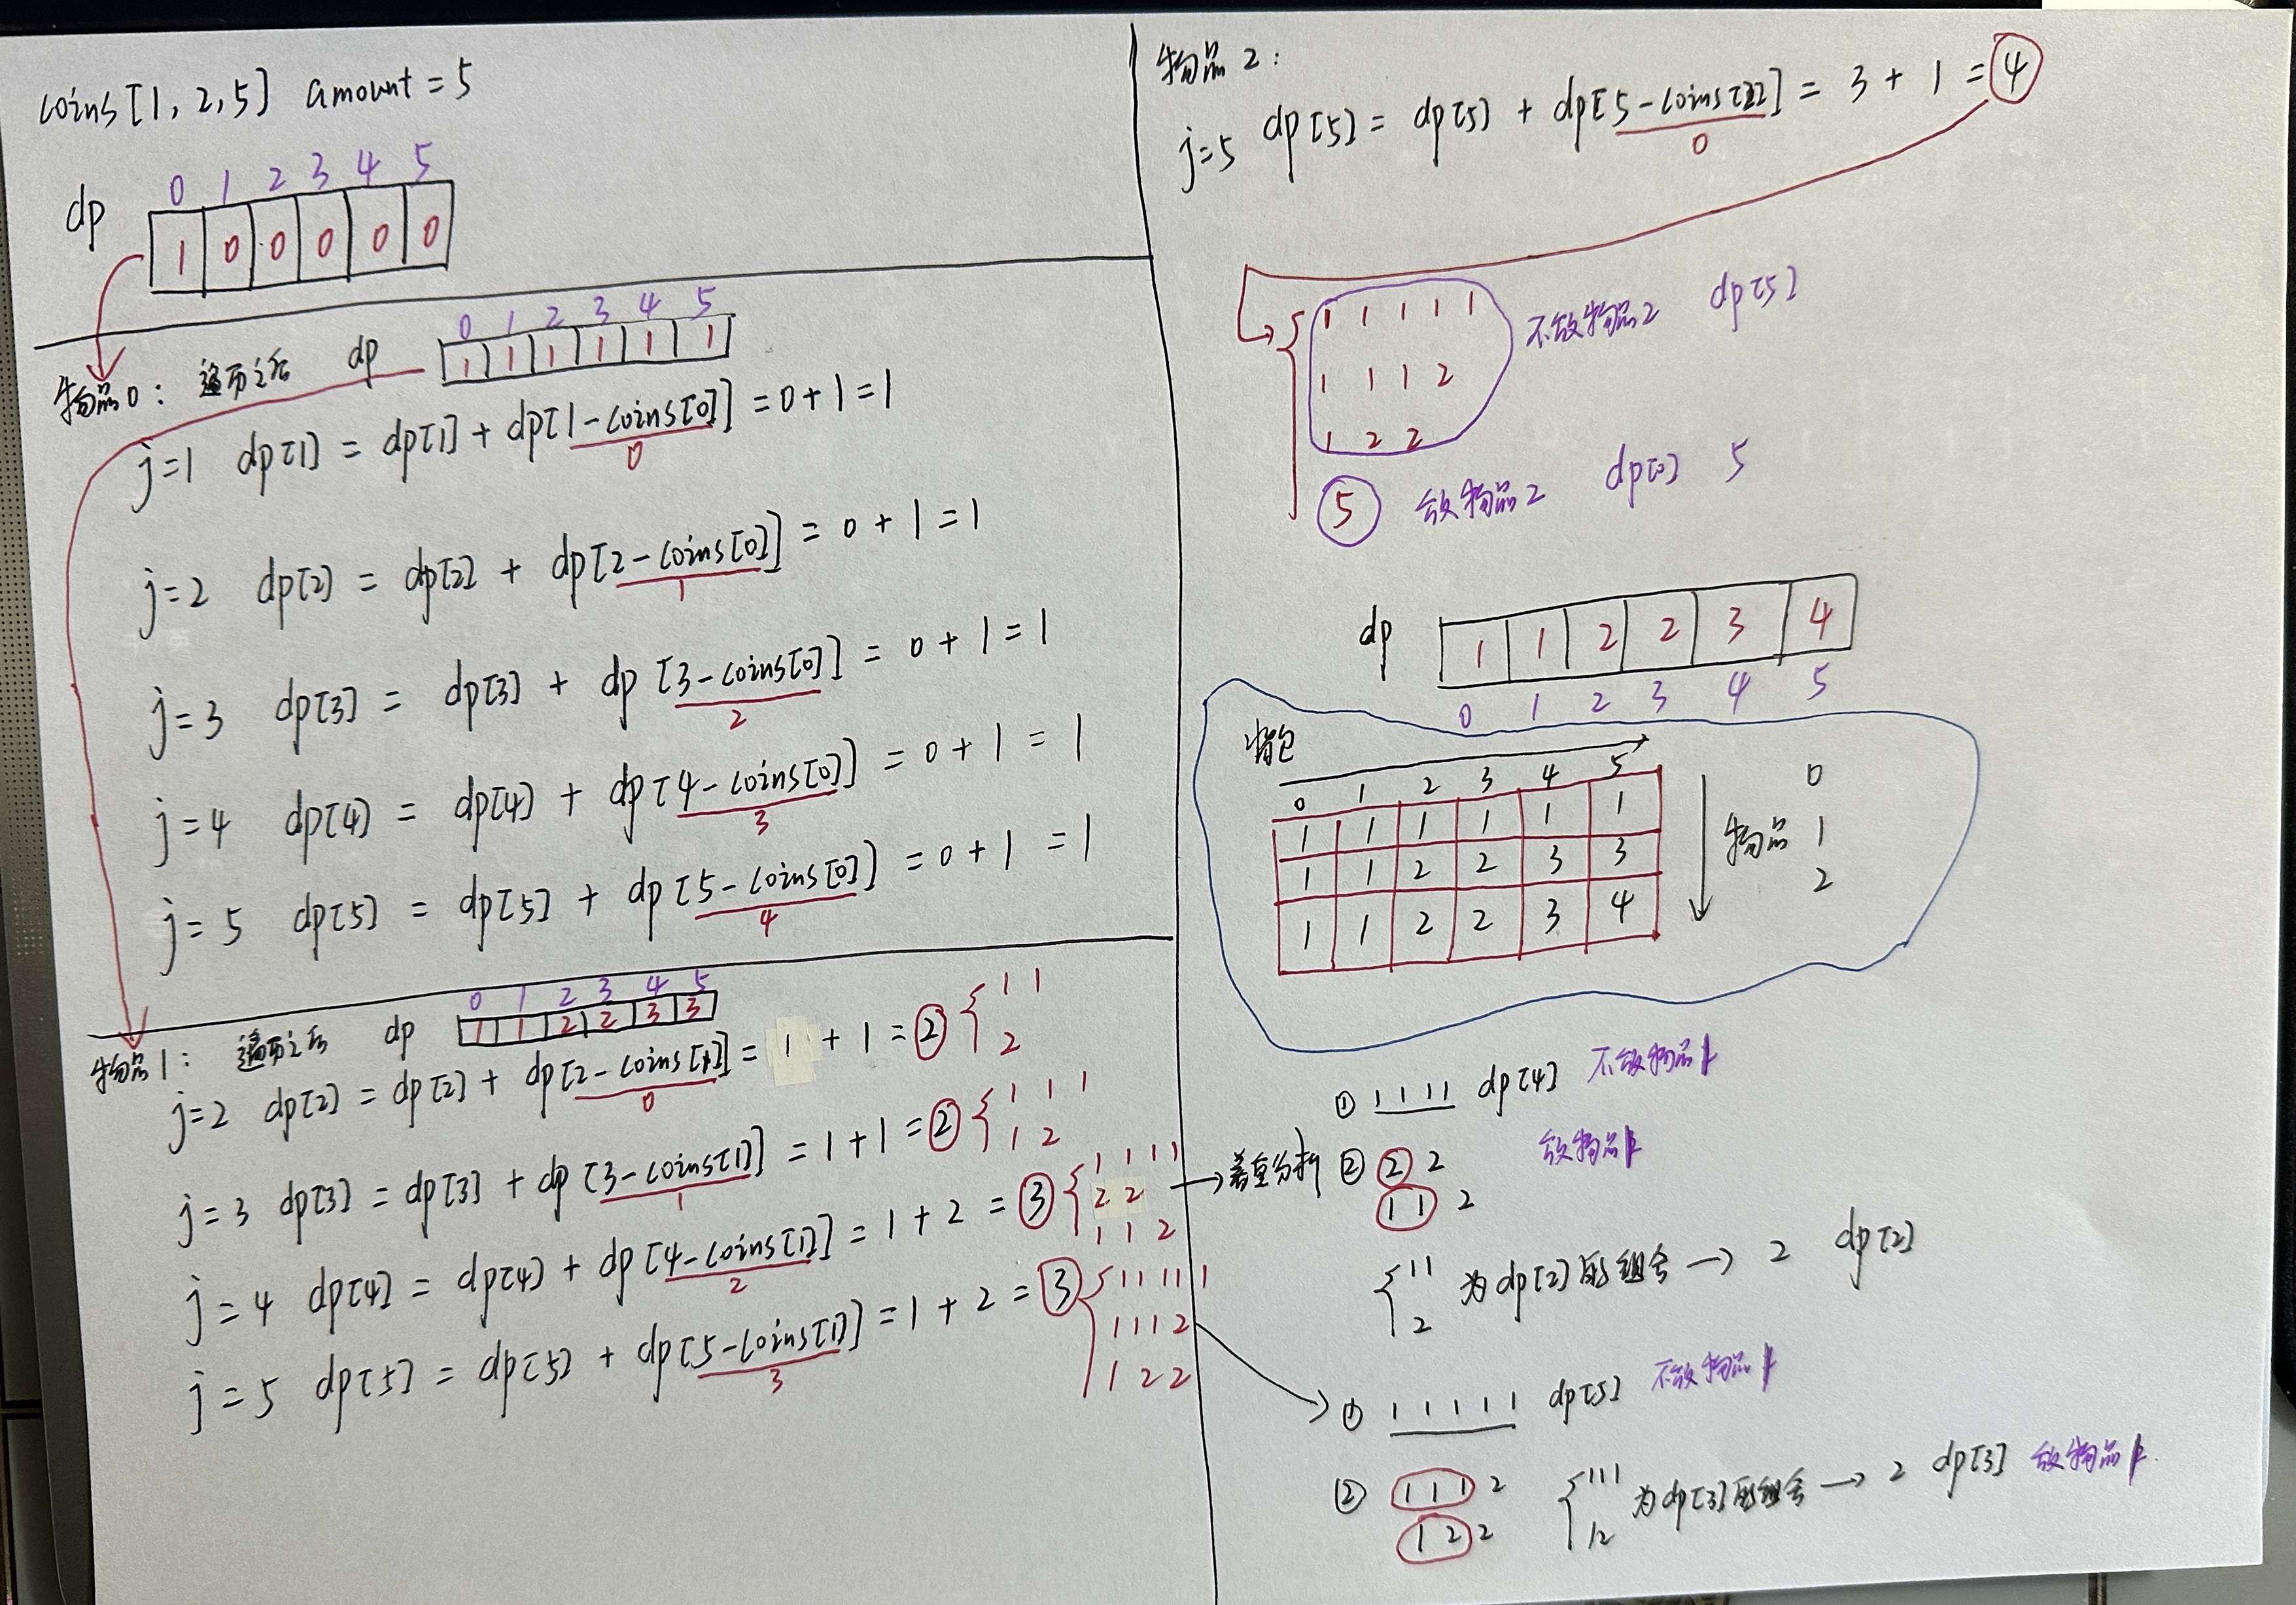 coins [1, 2, 5] amount = 5
0 1 2 3 4 5
dp 1 0 0 0 0 0
物品0: 遍历之后 dp
0 1 2 3 4 5
1 1 1 1 1 1
j=1 dp[1] = dp[1] + dp[1-coins[0]] = 0+1=1
0
j=2 dp[2] = dp[2] + dp[2-coins[0]] = 0+1=1
1
j=3 dp[3] = dp[3] + dp[3-coins[0]] = 0+1=1
2
j=4 dp[4] = dp[4] + dp[4-coins[0]] = 0+1=1
3
j=5 dp[5] = dp[5] + dp[5-coins[0]] = 0+1=1
4
物品1: 遍历之后 dp
0 1 2 3 4 5
1 1 2 2 3 3
j=2 dp[2] = dp[2] + dp[2-coins[1]] = 1+1=2
0
1 1
2
j=3 dp[3] = dp[3] + dp[3-coins[1]] = 1+1=2
1
1 1 1
1 2
j=4 dp[4] = dp[4] + dp[4-coins[1]] = 1+2=3
2
1 1 1 1
2 2
1 1 2
j=5 dp[5] = dp[5] + dp[5-coins[1]] = 1+2=3
3
1 1 1 1 1
1 1 1 2
1 2 2
物品2:
j=5 dp[5] = dp[5] + dp[5-coins[2]] = 3+1=4
0
1 1 1 1 1 不放物品2 dp[5]
1 1 1 2
1 2 2
5 放物品2 dp[0] 5
dp 1 1 2 2 3 4
0 1 2 3 4 5
背包
0 1 2 3 4 5
1 1 1 1 1 1
1 1 2 2 3 3
1 1 2 2 3 4
物品
0
1
2
① 1 1 1 1 dp[4] 不放物品1
着重分析 ② 2 2 放物品1
1 1 2
11 为dp[2]的组合 → 2 dp[2]
2
① 1 1 1 1 1 dp[5] 不放物品1
② 1 1 1 2
1 2 2
111 为dp[3]的组合 → 2 dp[3] 放物品1
12